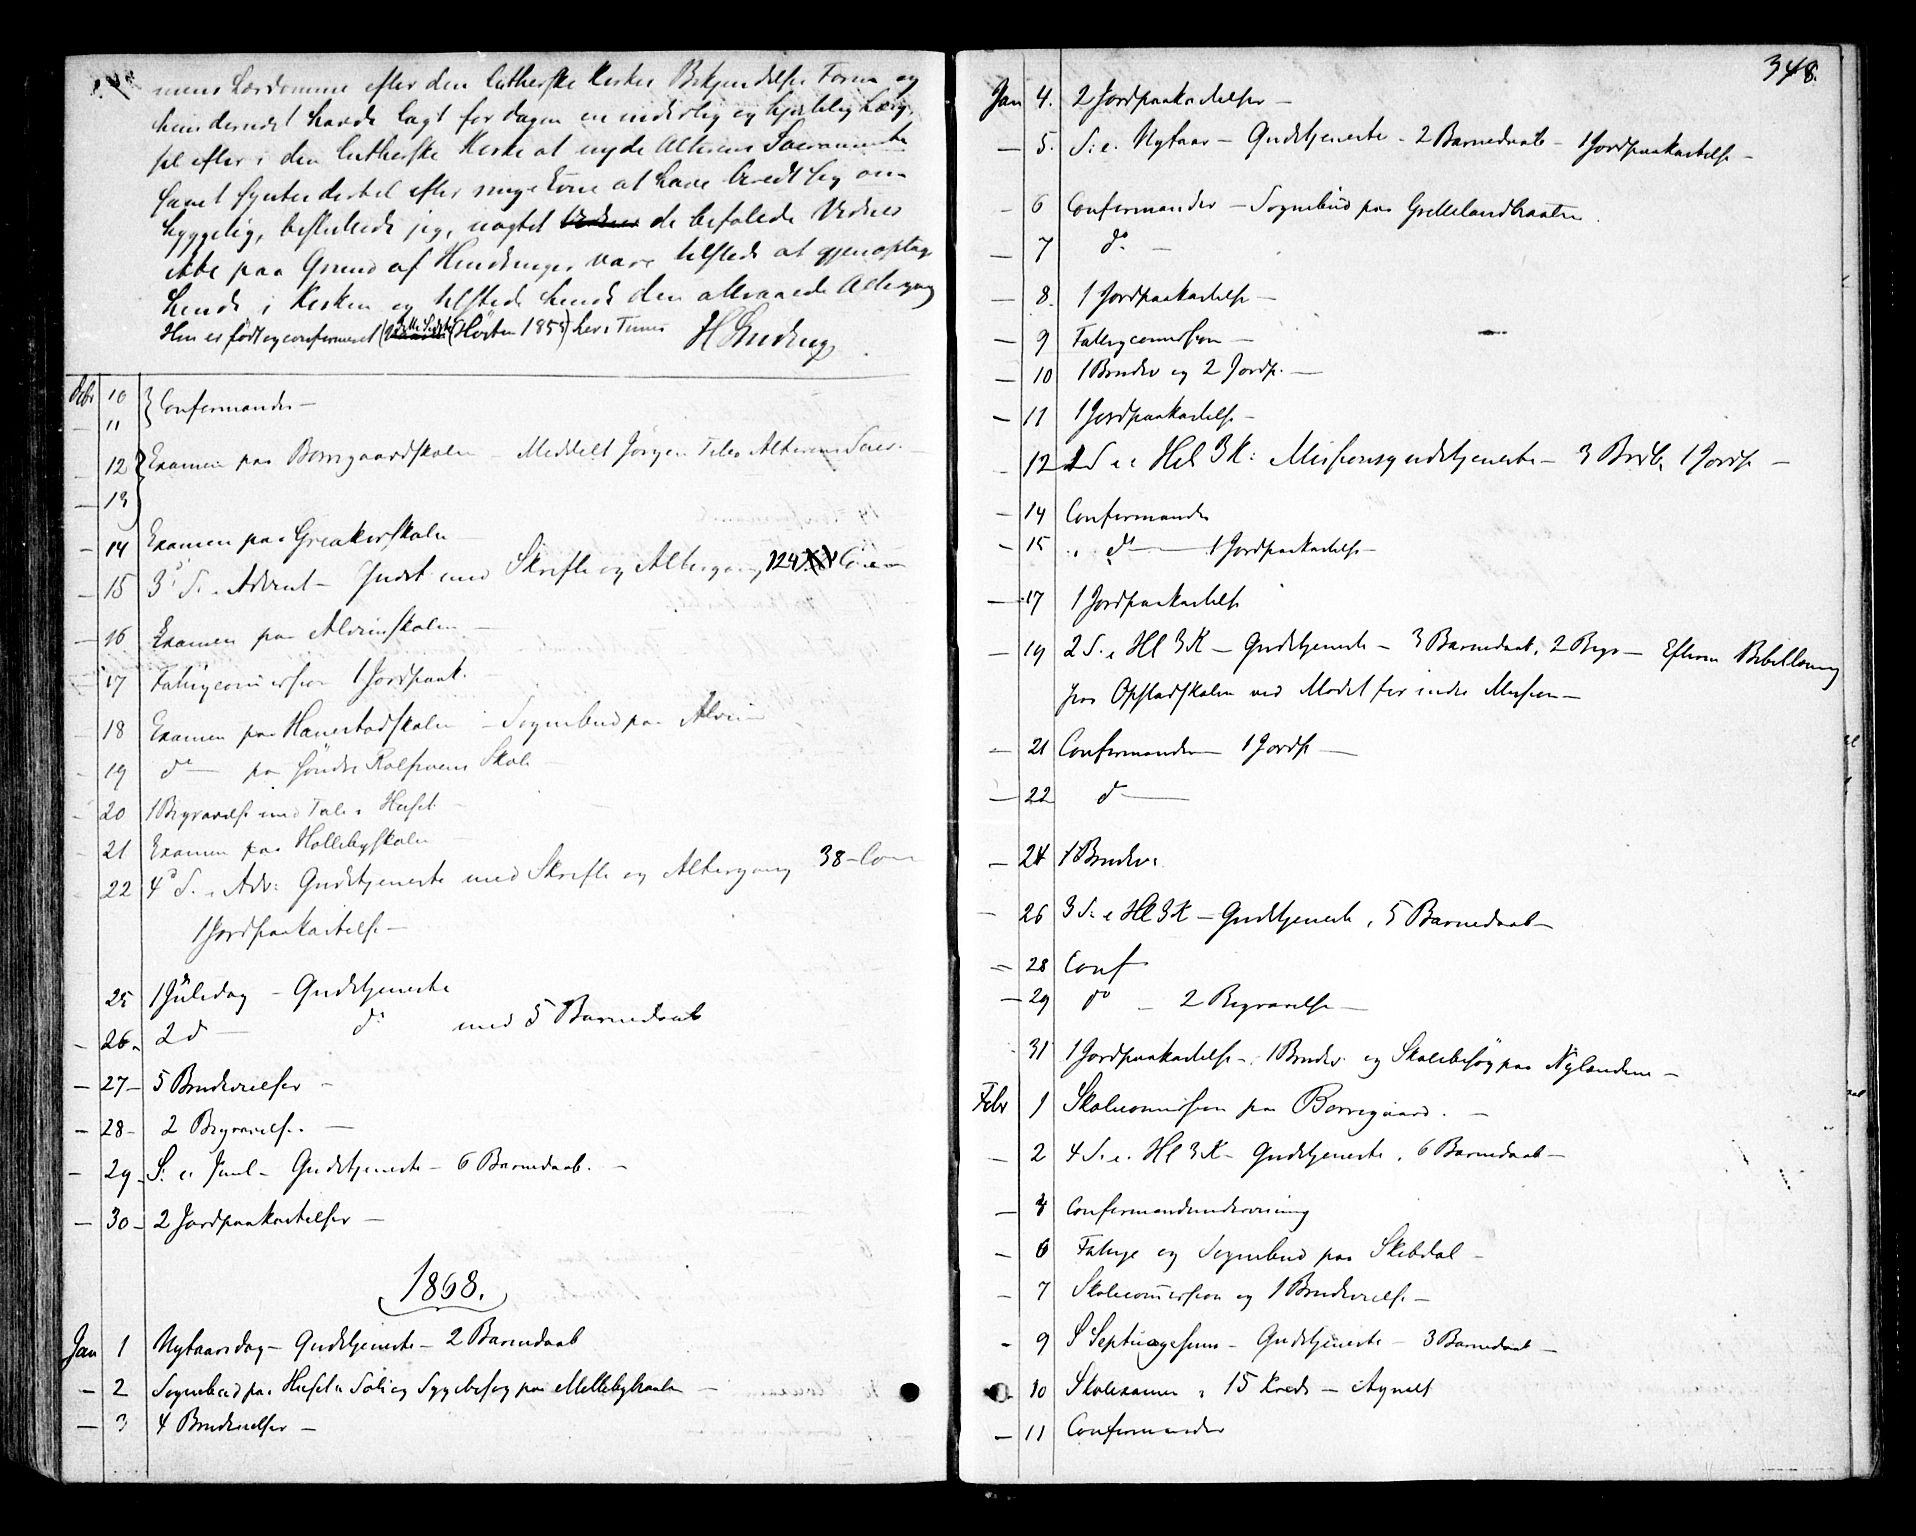 mens Lærdomme efter den lutherske Kirkes Bekjendelse Form og
hun derved havde lagt for dagen en inderlig og hjertelig Læng-
sel efter i den lutherske Kirke at nyde Alterens Sacramente
samt syntes dertil efter mig Evne at have beredt sig om-
hyggelig, besluttede jeg, uagtet de befalede Vidner
ikke paa Grund af Hindringer vare tilstede at gjenoptage
hende i Kirken og tilstede hende den attraaede Altergang
Hun er født og confirmeret (Høsten 1855) her i Tune
Debr 10 } Confirmander —
— 11
— 12 Examen paa Borregaardskolen — Meddelt Jørgen Alterens Sacr. —
— 13
— 14 Examen paa Greakerskolen —
— 15 3 S. i Advent — Gudst med Skrifte og Altergang 124
— 16 Examen paa Alvimskolen —
— 17 Fattigcommission 1 Jordpaak. —
— 18 Examen paa Hanestadskolen — Sognebud paa Alvim
— 19 do — paa Søndre Rolfsøens Skole —
— 20 1 Begravelse med Tale i Huset —
— 21 Examen paa Hollebyskolen —
— 22 4 S. i Adv: Gudstjeneste med Skrifte og Altergang 38 — Com
1 Jordpaakastelse —
25 1 Juledag — Gudstjeneste
— 26 2 d — do med 5 Barnedaab
— 27 — 5 Brudevielser —
— 28 — 2 Begravelse. —
— 29 S. e. Juul — Gudstjeneste — 6 Barnedaab. —
— 30 — 2 Jordpaakastelser —
1868.
Jan 1 Nytaarsdag — Gudstjeneste — 2 Barnedaab
— 2 Sognebud paa og Sygebesøg paa Mellebybraaten —
— 3 4 Brudevielser —
348.
Jan 4. 2 Jordpaakastelser —
— 5. S. e. Nytaar — Gudstjeneste — 2 Barnedaab — 1 Jordpaakastelse —
— 6 Confirmander — Sognebud paa Grellelandbraaten.
— 7 do —
— 8. 1 Jordpaakastelse —
— 9 Fattigcommission —
— 10 1 Brudev og 2 Jordp. —
— 11 1 Jordpaakastelse —
— 12 1 S e Hel 3 K: Missionsgudstjeneste — 3 Brdb, 1 Jordp —
— 14 Confirmander
— 15 do — 1 Jordpaakastelse —
— 17 1 Jordpaakastelse
— 19 2 S. e Hl 3 K — Gudstjeneste — 3 Barnedaab, 2 Begr — Efterm Bibellæsning
paa Opstadskolen ved Mødet for indre Mission —
— 21 Confirmander — 1 Jordp —
— 22 d —
— 24 1 Brudev:
— 26 3 S. e Hl 3 K — Gudstjeneste, 5 Barnedaab —
— 28 Conf
— 29 do — 2 Begravelse —
31 1 Jordpaakastelse —, 1 Brudev. og Skolebesøg paa Nylandene —
Febr 1 Skolecommission paa Borregaard. —
— 2 4 S. e. Hl 3 K — Gudstjeneste, 6 Barnedaab —
— 4 Confirmandundervisning
— 6 Fattige og Sognebud paa Skibdal —
— 7 Skolecommission og 1 Brudevielse —
— 9 S Septuagesima — Gudstjeneste — 3 Barnedaab —
— 10 Skolexamen i 15 Kreds — Agnalt
— 11 Confirmander